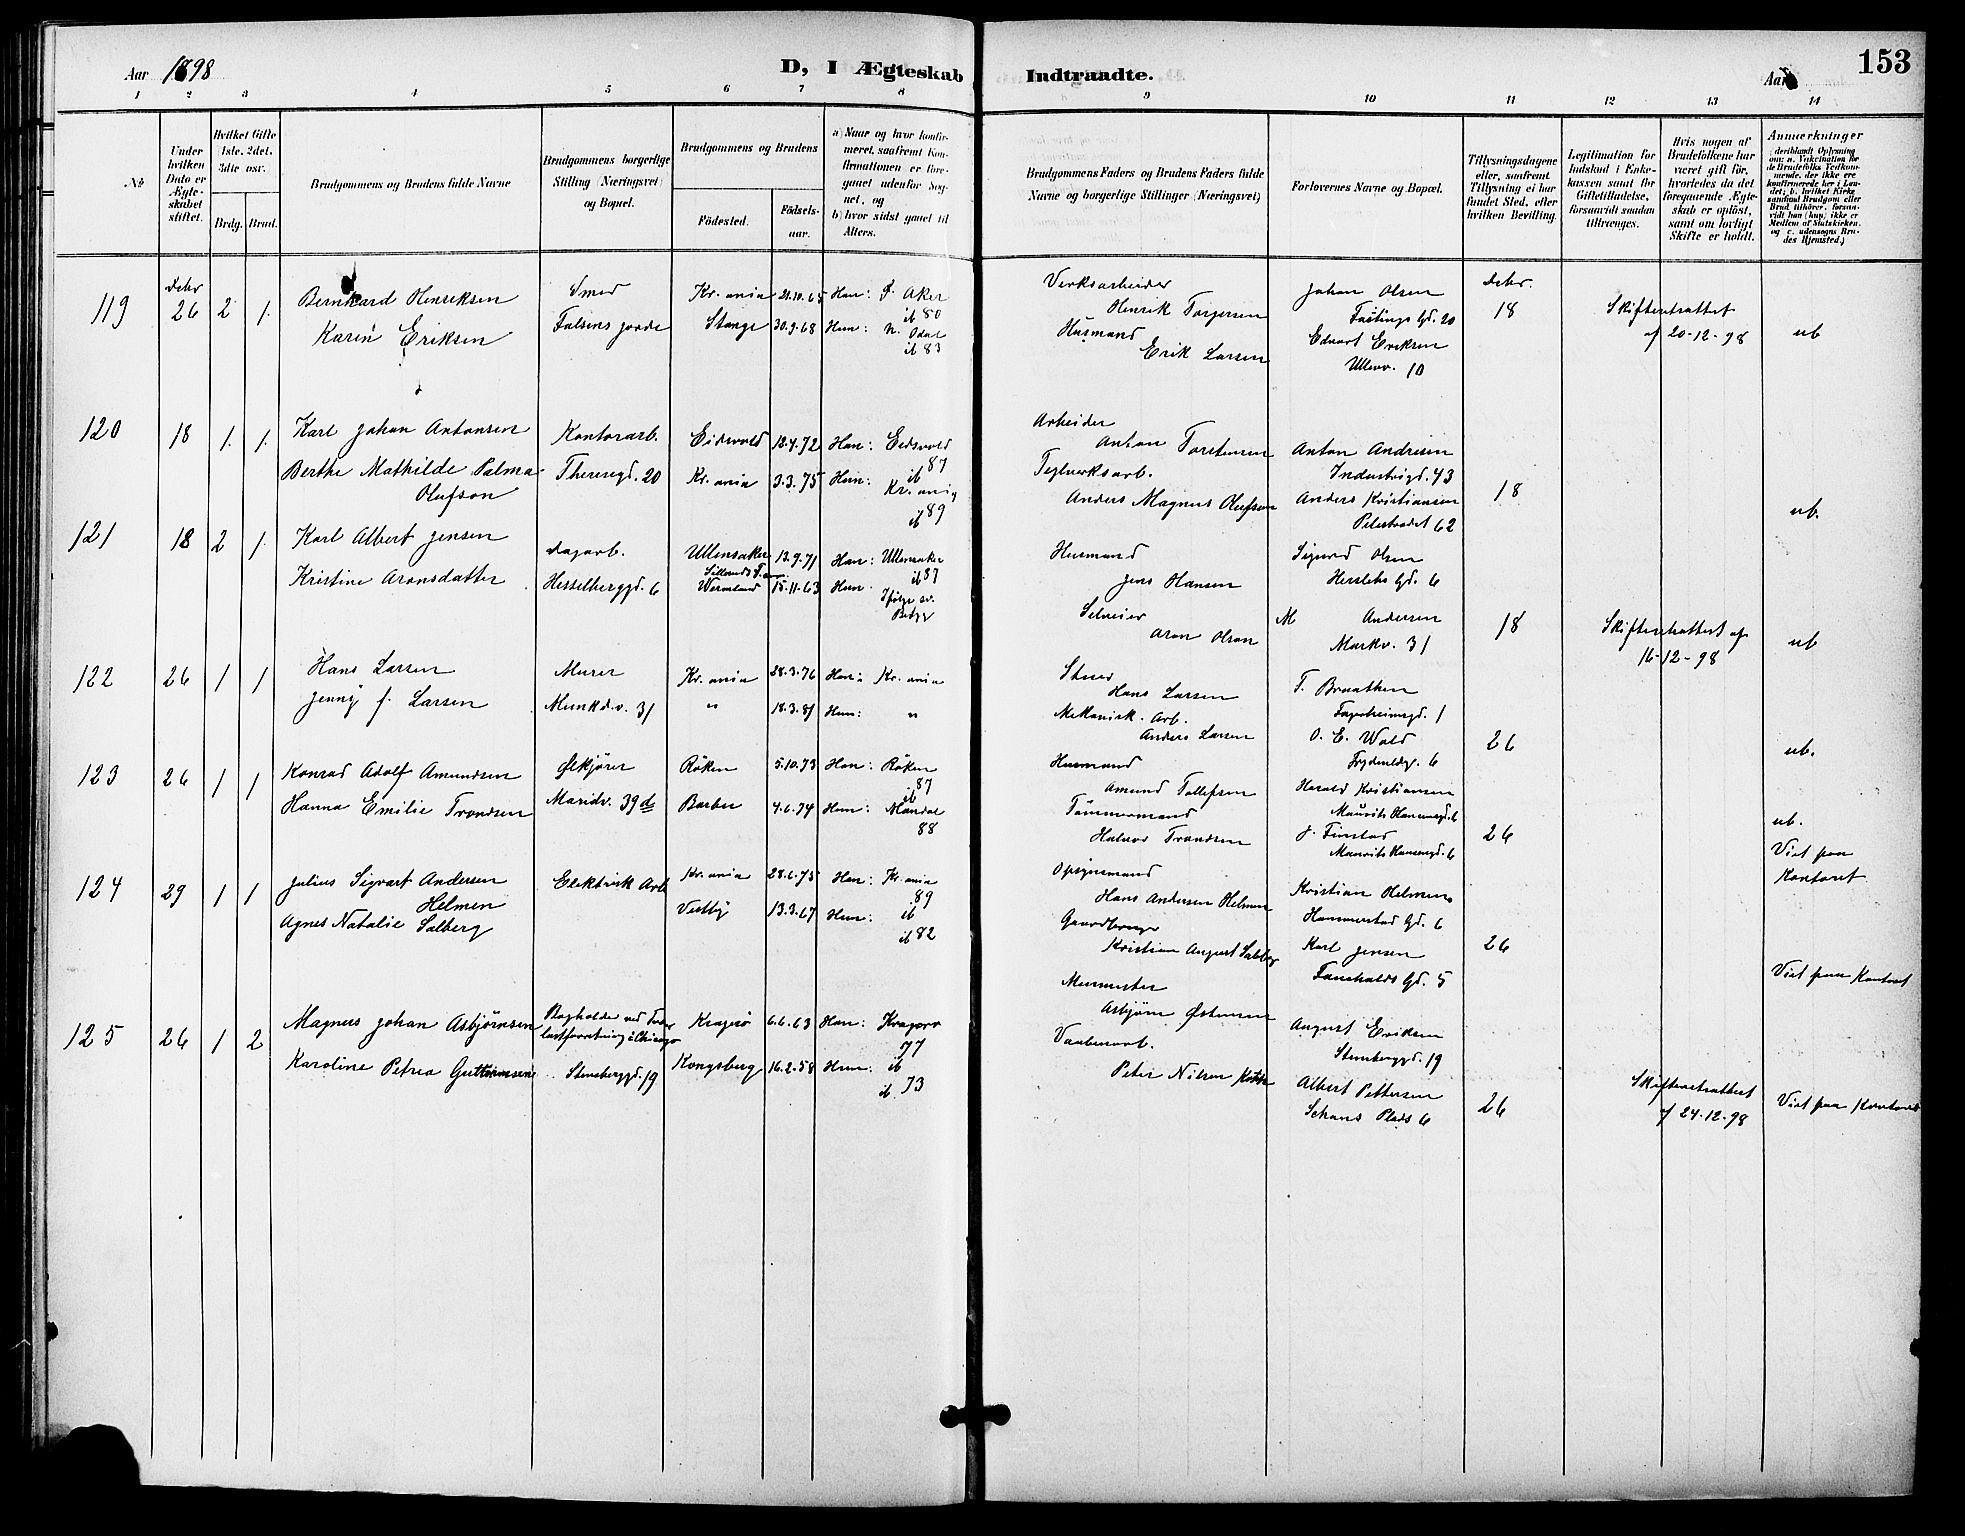 Aar 1898
D, I Ægteskab Indtraadte.
Aar
153
1 2 3 4 5 6 7 8 9 10 11 12 13 14
No
Under hvilken Dato er Ægteskabet stiftet.
Hvilket Gifte (1ste, 2det, 3die osv.
Brdg. Brud.
Brudgommens og Brudens fulde Navne
Brudgommens borgerlige Stilling (Næringsvei) og Bopæl.
Brudgommens og Brudens
Födested.
Födselsaar.
a) Naar og hvor konfirmeret, saafremt Konfirmationen er foregaaet udenfor Sognet, og
b) hvor sidst gaaet til Alters.
Brudgommens Faders og Brudens Faders fulde Navne og borgerlige Stillinger (Næringsvei)
Forlovernes Navne og Bopæl.
Tillysningsdagene eller, saafremt Tillysning ei har fundet Sted, efter hvilken Bevilling.
Legitimation for Indskud i Enkekassen samt for Giftetilladelse, forsaavidt saadan tiltrænges.
Hvis nogen af Brudefolkene har været gift før, hvorledes da det foregaaende Ægteskab er opløst, samt om lovligt Skifte er holdt.
Anmærkninger
119 Debr 26 2 1.
Bernhard Henriksen
Karen Eriksen
Smed
Falsens gade
Kr.ania 21.10.65 Han: Ø. Aker
ib 80
Stange 30.9.68 Hun: N. Odal
ib 83
Verksarbeider
Henrik Torgersen
Husmand
Erik Larsen
Johan Olsen
Fastings Gd. 20
Edvart Eriksen
Ullevv. 10
Debr.
18
Skifteretsattest
af 20-12-98
ub
120 18 1. 1.
Karl Johan Antonsen
Berthe Mathilde Palma
Olufson
Kontorarb.
Theresegd. 20
Eidsvold 12.4.72 Han: Eidsvold
87
ib
Kr.ania 3.3.75 Hun: Kr.ania
ib 89
Arbeider
Anton Torstensen
Teglverksarb.
Anders Magnus Olufson
Anton Andresen
Industrigd. 43
Anders Kristiansen
Pilestrædet 62
18
ub.
121 18 2 1.
Karl Albert Jensen
Kristine Aronsdatter
Dagarb.
Hesselberggd. 6
Ullensaker 13.9.71 Han: Ullensaker
ib 87
Wermland 15.11.63 Hun:
Ifølge sv.
Husmand
Jens Hansen
Selveier
Aron Olson
Sigurd Olsen
Herslebs Gd. 6
M Andersen
Markv. 31
18
Skifteretsattest af
16-12-98
ub
122 26 1 1
Hans Larsen
Jenny J. Larsen
Murer
Munkd.v. 31
Kr.ania 28.3.76 Han: Kr.ania
" 18.3.81 Hun: "
Hans Larsen
Mekanisk. Arb.
Anders Larsen
T. Braathen
Fagerheimsgd. 1
O. E. Wold
26
ub.
123 26 1 1
Konrad Adolf Amundsen
Hanna Emilie Trondsen
Ølkjører
Maridv. 39d
Röken 5.10.73 Han: Röken
87
ib
Barbu 4.6.74 Hun: Mandal
88
Husmand
Amund Tollefsen
Tömmermand
Halvor Trondsen
Harald Kristiansen
Maurits Hansensgd. 6
J. Finstad
Maurits Hansensgd. 6
26
ub.
Viet paa
Kontoret
124 29 1 1
Julius Sigvart Andersen
Helmen
Agnes Natalie Salberg
Elektrisk Arb
Kr.ania 28.6.75 Han: Kr.ania
89
ib
Vestby 13.3.67 Hun:
ib 82
Opsynsmand
Hans Andersen Helmen
Gaardbruger
Kristian August Salberg
Kristian Helmen
Hammerstad Gd. 6
Karl Jensen
Fauchalds Gd. 5
26
Viet paa Kontoret
125 26 1 2
Magnus Johan Asbjørnsen
Karoline Petrea Guttormsen
Bogholder ved
i Chicago
Stensberggd. 19
Kragerö 6.6.63 Han: Kragerö
77
ib
Kongsberg 16.2.58 Hun:
ib 73
Murmester
Asbjørn Østensen
Vaabenarb.
Peter Nilsen
August Eriksen
Stensberggd. 19
Albert Pettersen
Schous Plads 6
26
Skifteretsattest
af 24-12-98
Viet paa Kontoret